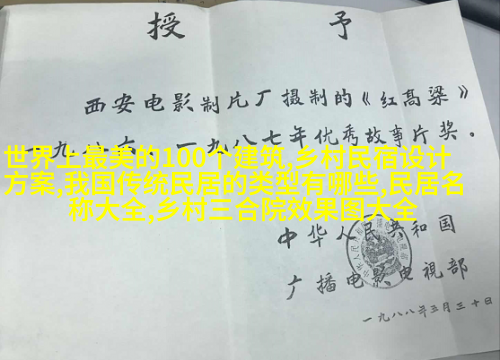 授予
西安电影制片厂摄制的《红高粱》
一九八六、一九八七年优秀故事片奖。
世界上最美的100个建筑,乡村民宿设计
方案,我国传统民居的类型有哪些,民居名
称大全,乡村三合院效果图大全
中华人民共和国
广播电影电视部
一九八八年三月三十日